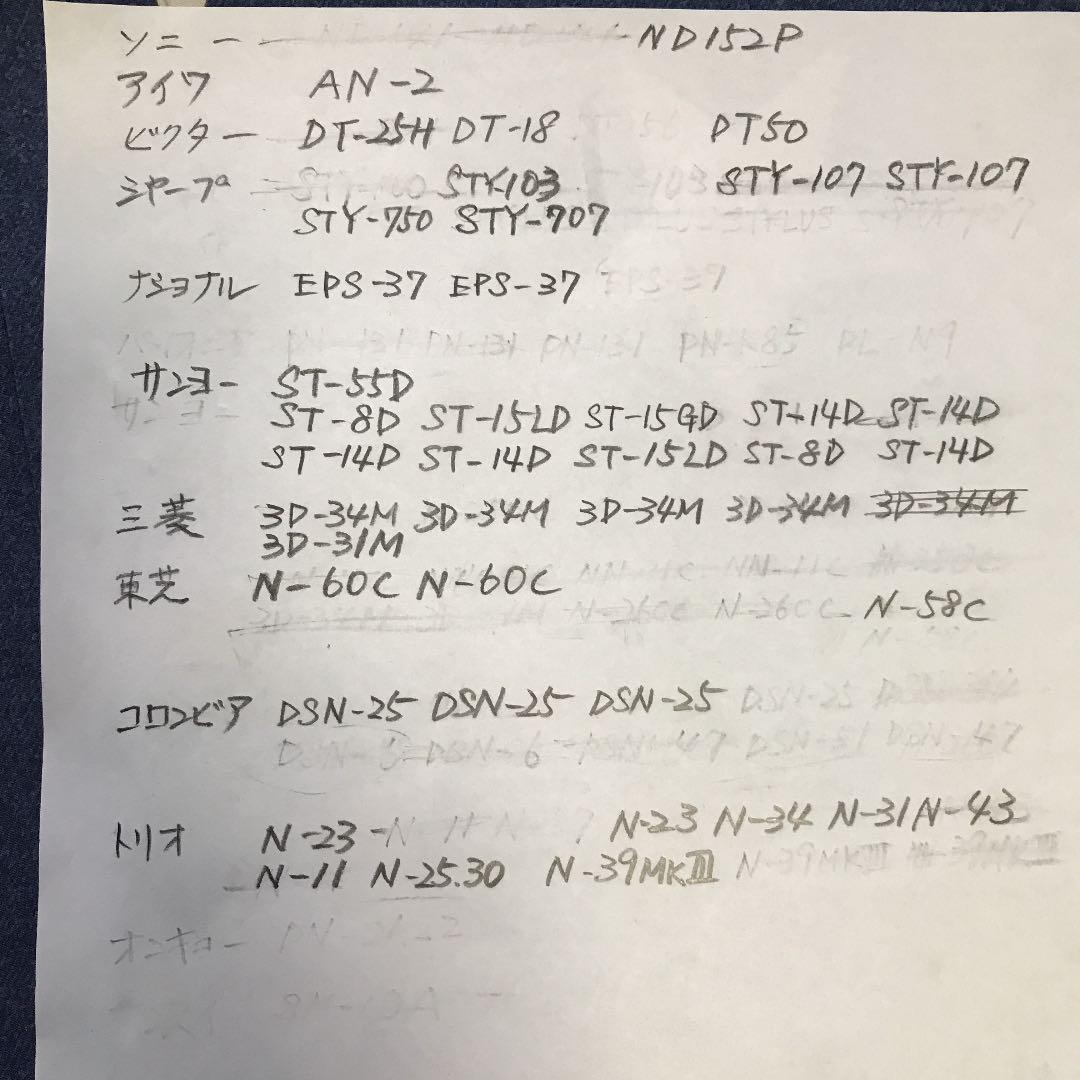 ソニー ND152P
アイワ AN-2
ビクター DT-25H DT-18 DT50
シャープ STY-103 STY-107 STY-107
STY-750 STY-707
ナショナル EPS-37 EPS-37
サンヨー ST-55D
ST-8D ST-15LD ST-15GD ST-14D ST-14D
ST-14D ST-14D ST-15LD ST-8D ST-14D
三菱 3D-34M 3D-34M 3D-34M 3D-34M 3D-34M
3D-31M
東芝 N-60C N-60C
N-58C
コロンビア DSN-25 DSN-25 DSN-25
トリオ N-23 N-23 N-34 N-31 N-43
N-11 N-25.30 N-39MKIII
オンキョー